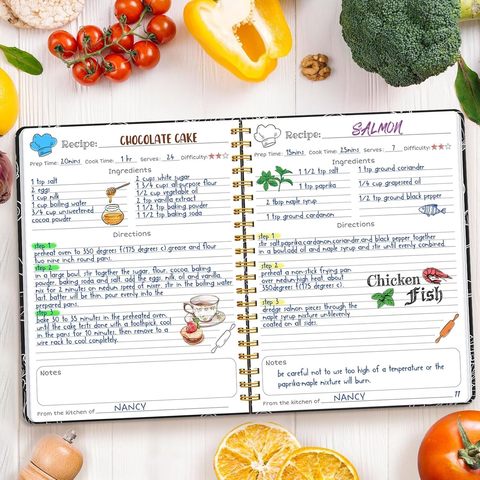 Recipe: CHOCOLATE CAKE
Prep Time: 20mins Cook Time: 1 hr Serves: 24 Difficulty:
Ingredients
1 tsp salt
2 eggs
1 cup milk
1 cup boiling water
3/4 cup unsweetened
cocoa powder
2 cups white sugar
1 3/4 cups all purpose flour
1/2 cup vegetable oil
2 tsp vanilla extract
1 1/2 tsp baking powder
1 1/2 tsp baking soda
Directions
step 1
preheat oven to 350 degrees f(175 degrees c). grease and flour
two nine inch round pans.
step 2
in a large bowl, stir together the sugar, flour, cocoa, baking
powder, baking soda and salt. add the eggs, milk, oil and vanilla,
mix for 2 minutes on medium speed of mixer. stir in the boiling water
last. batter will be thin. pour evenly into the
prepared pans.
step 3
bake 30 to 35 minutes in the preheated oven,
until the cake tests done with a toothpick. cool
in the pans for 10 minutes, then remove to a
wire rack to cool completely.
Notes
From the kitchen of NANCY
Recipe: SALMON
Prep Time: 15mins Cook Time: 25mins Serves: 7 Difficulty:
Ingredients
1 1/2 tsp salt
1 tsp paprika
2 tbsp maple syrup
1 tsp ground cardamon
1 tsp ground coriander
1/4 cup grapeseed oil
1/2 tsp ground black pepper
Directions
step 1
stir salt,paprika,cardamon,coriander,and black pepper together
in a bowl.add oil and maple syrup and stir until evenly combined.
step 2
preheat a non-stick frying pan
over medium high heat, about
350degrees f(175 degrees c).
Chicken
Fish
step 3
dredge salmon pieces through the
maple syrup mixture until evenly
coated on all sides.
Notes
be careful not to use too high of a temperature or the
paprika-maple mixture will burn.
From the kitchen of NANCY
11